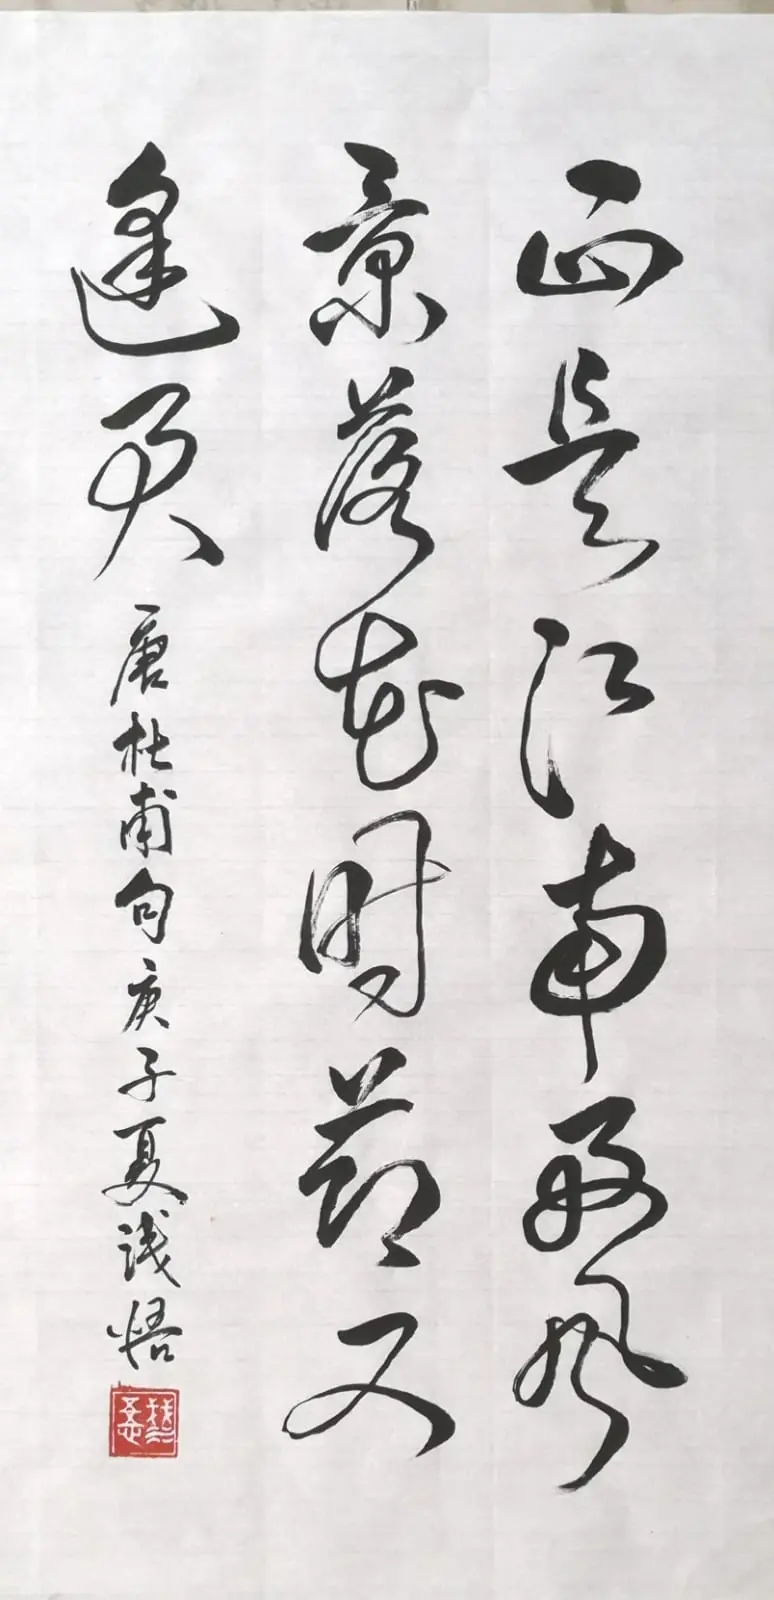 正是江南好风
景落花时节又
逢君 唐杜甫句庚子夏浅悟